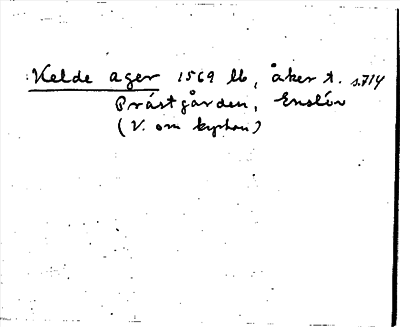 Kelde ager 1569 lb, åker t. s. 714
Prästgården, Enslöv
(V. om kyrkan)